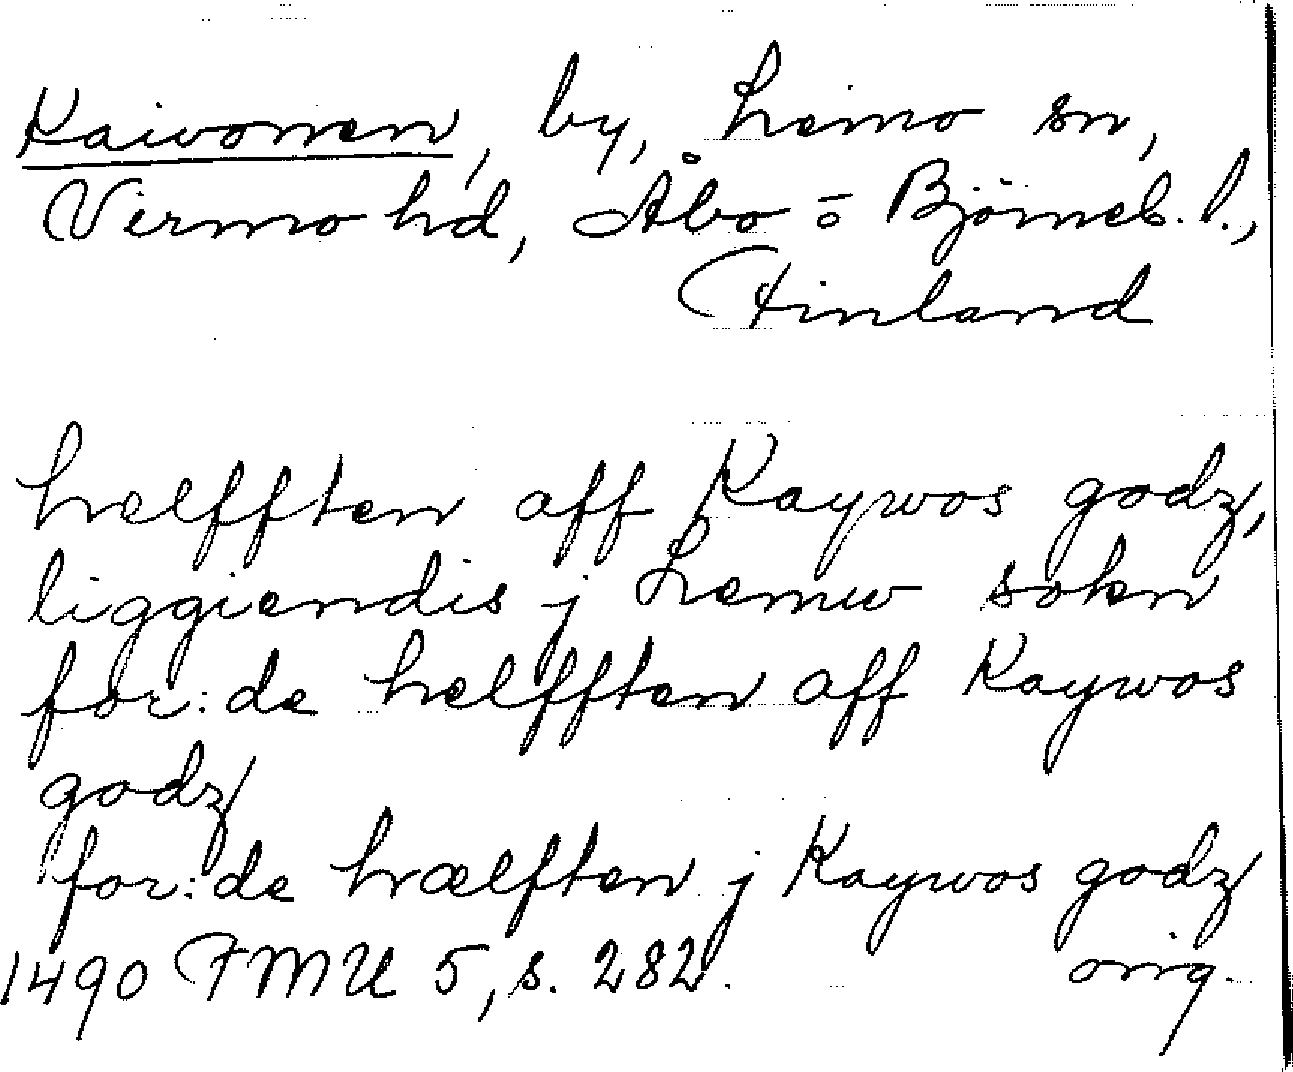 Kaivonen, by, Lemo sn,
Virmo hd, Åbo o Björneb. l.,
Finland
helfften aff Kaywos godz,
liggiendis j Lemw sokn
for:de helfften aff Kaywos
godz
for:de hælften j Kaywos godz
1490 FMU 5, s. 282. orig.